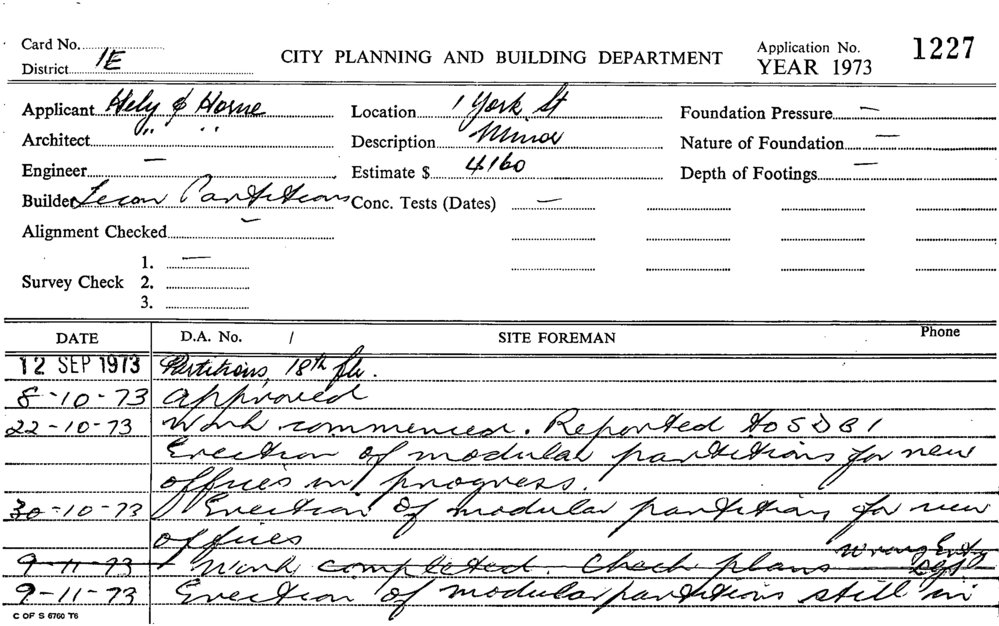 Card No.
District 1E
CITY PLANNING AND BUILDING DEPARTMENT
Application No. 1227
YEAR 1973
Applicant Hely & Horne
Architect " "
Engineer —
Builder Partitions
Alignment Checked —
Survey Check 1. —
2.
3.
Location 1 York St
Description Minor
Estimate $ 4160
Conc. Tests (Dates) —
Foundation Pressure —
Nature of Foundation —
Depth of Footings —
DATE D.A. No. / SITE FOREMAN Phone
12 SEP 1973 Partitions, 18th flr.
8-10-73 Approved
22-10-73 Work commenced. Reported to SDBI
Erection of modular partitions for new
offices in progress.
30-10-73 Erection of modular partitions for new
offices
Wrong Entry
9-11-73 Work completed. Check plans
9-11-73 Erection of modular partitions still in
C OF S 6760 T6